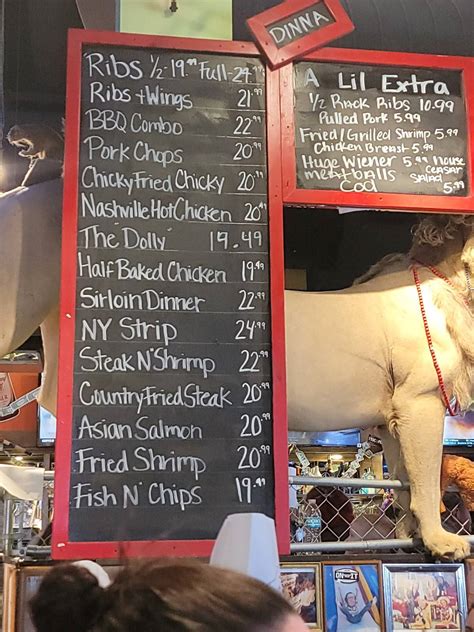 DINNA
Ribs 1/2 19.99 Full-24.99
Ribs + Wings 21.99
BBQ Combo 22.99
Pork Chops 20.99
Chicky Fried Chicky 20.99
Nashville Hot Chicken 20.99
The "Dolly" 19.49
Half Baked Chicken 19.99
Sirloin Dinner 22.99
NY Strip 24.99
Steak N' Shrimp 22.99
Country Fried Steak 20.99
Asian Salmon 20.99
Fried Shrimp 20.99
Fish N' Chips 19.99
A Lil Extra
1/2 Rack Ribs 10.99
Pulled Pork 5.99
Fried/Grilled Shrimp 5.99
Chicken Breast 5.99
Huge Wiener 5.99
meatballs
House
Ceasar
Salad
5.99